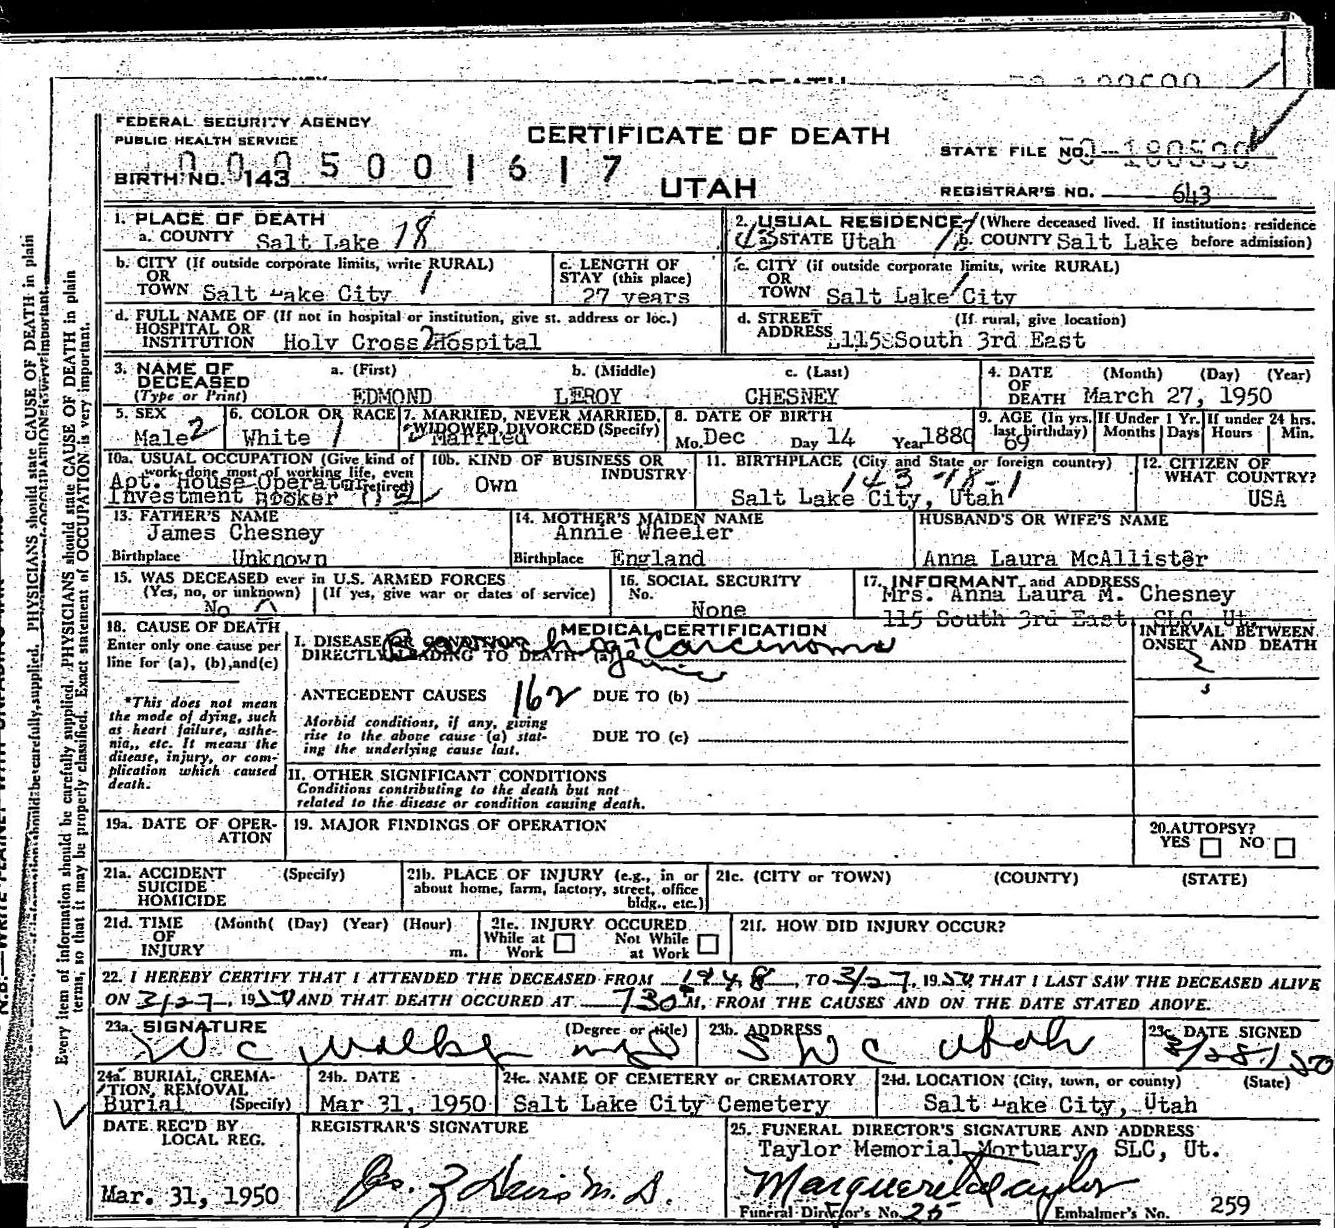 FEDERAL SECURITY AGENCY
PUBLIC HEALTH SERVICE
CERTIFICATE OF DEATH
STATE FILE NO.
BIRTH NO. 143
0005001617
UTAH
REGISTRAR'S NO. 643
1. PLACE OF DEATH
a. COUNTY Salt Lake 18
2. USUAL RESIDENCE (Where deceased lived. If institution: residence
a. STATE Utah b. COUNTY Salt Lake before admission)
b. CITY (If outside corporate limits, write RURAL)
OR
TOWN Salt Lake City 1
c. LENGTH OF
STAY (this place)
27 years
c. CITY (if outside corporate limits, write RURAL)
OR
TOWN Salt Lake City
d. FULL NAME OF (If not in hospital or institution, give st. address or loc.)
HOSPITAL OR
INSTITUTION Holy Cross Hospital
d. STREET (If rural, give location)
ADDRESS 115 South 3rd East
3. NAME OF a. (First) b. (Middle) c. (Last)
DECEASED
(Type or Print) EDMOND LEROY CHESNEY
4. DATE (Month) (Day) (Year)
OF
DEATH March 27, 1950
5. SEX
Male 2
6. COLOR OR RACE
White 1
7. MARRIED, NEVER MARRIED,
WIDOWED DIVORCED (Specify)
Married
8. DATE OF BIRTH
Mo. Dec Day 14 Year 1880
9. AGE (In yrs. last birthday) 69
If Under 1 Yr. Months Days
If under 24 hrs. Hours Min.
10a. USUAL OCCUPATION (Give kind of
work done most of working life, even
if retired)
Apt. House Operator
Investment Broker
10b. KIND OF BUSINESS OR
INDUSTRY
Own
11. BIRTHPLACE (City and State or foreign country)
143-18-1
Salt Lake City, Utah
12. CITIZEN OF
WHAT COUNTRY?
USA
13. FATHER'S NAME
James Chesney
Birthplace Unknown
14. MOTHER'S MAIDEN NAME
Annie Wheeler
Birthplace England
HUSBAND'S OR WIFE'S NAME
Anna Laura McAllister
15. WAS DECEASED ever in U.S. ARMED FORCES
(Yes, no, or unknown) (If yes, give war or dates of service)
No
16. SOCIAL SECURITY
No.
None
17. INFORMANT and ADDRESS
Mrs. Anna Laura M. Chesney
115 South 3rd East, SLC, Ut.
18. CAUSE OF DEATH
Enter only one cause per
line for (a), (b), and (c)
MEDICAL CERTIFICATION
I. DISEASE OR CONDITION
DIRECTLY LEADING TO DEATH (a)
Bronchogenic Carcinoma
INTERVAL BETWEEN
ONSET AND DEATH
*This does not mean
the mode of dying, such
as heart failure, asthe-
nia,, etc. It means the
disease, injury, or com-
plication which caused
death.
ANTECEDENT CAUSES 162 DUE TO (b)
Morbid conditions, if any, giving
rise to the above cause (a) stat-
ing the underlying cause last.
DUE TO (c)
II. OTHER SIGNIFICANT CONDITIONS
Conditions contributing to the death but not
related to the disease or condition causing death.
19a. DATE OF OPER-
ATION
19. MAJOR FINDINGS OF OPERATION
20. AUTOPSY?
YES NO
21a. ACCIDENT (Specify)
SUICIDE
HOMICIDE
21b. PLACE OF INJURY (e.g., in or
about home, farm, factory, street, office
bldg., etc.)
21c. (CITY or TOWN) (COUNTY) (STATE)
21d. TIME (Month( (Day) (Year) (Hour)
OF
INJURY m.
21e. INJURY OCCURED
While at Work Not While at Work
21f. HOW DID INJURY OCCUR?
22. I HEREBY CERTIFY THAT I ATTENDED THE DECEASED FROM 1948, TO 3/27, 1950 THAT I LAST SAW THE DECEASED ALIVE
ON 3/27, 1950 AND THAT DEATH OCCURED AT 730 M, FROM THE CAUSES AND ON THE DATE STATED ABOVE.
23a. SIGNATURE (Degree or title)
W C MD
23b. ADDRESS
Utah
23c. DATE SIGNED
3/28/50
24a. BURIAL, CREMA-
TION, REMOVAL
Burial (Specify)
24b. DATE
Mar 31, 1950
24c. NAME OF CEMETERY or CREMATORY
Salt Lake City Cemetery
24d. LOCATION (City, town, or county) (State)
Salt Lake City, Utah
DATE REC'D BY
LOCAL REG.
Mar. 31, 1950
REGISTRAR'S SIGNATURE
25. FUNERAL DIRECTOR'S SIGNATURE AND ADDRESS
Taylor Memorial Mortuary, SLC, Ut.
Marguerite Taylor
Funeral Director's No. 25 Embalmer's No. 259
Every item of information should be carefully supplied. PHYSICIANS should state CAUSE OF DEATH in plain
terms, so that it may be properly classified. Exact statement of OCCUPATION is very important.